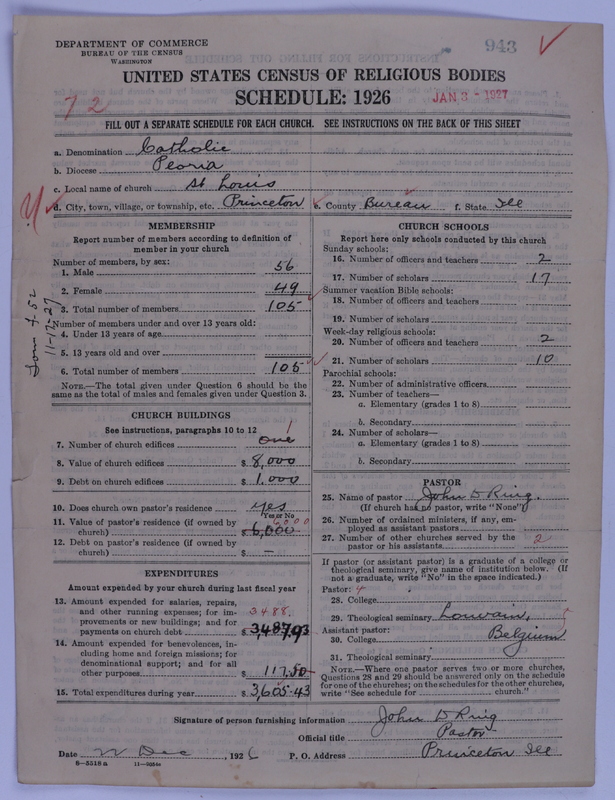 DEPARTMENT OF COMMERCE
BUREAU OF THE CENSUS
WASHINGTON
943
UNITED STATES CENSUS OF RELIGIOUS BODIES
SCHEDULE: 1926
JAN 3 - 1927
72
FILL OUT A SEPARATE SCHEDULE FOR EACH CHURCH. SEE INSTRUCTIONS ON THE BACK OF THIS SHEET
a. Denomination Catholic
b. Diocese Peoria
c. Local name of church St Louis
d. City, town, village, or township, etc. Princeton e. County Bureau f. State Ill
MEMBERSHIP
Report number of members according to definition of
member in your church
Number of members, by sex:
1. Male 56
2. Female 49
3. Total number of members 105
Number of members under and over 13 years old:
4. Under 13 years of age
5. 13 years old and over
6. Total number of members 105
NOTE.—The total given under Question 6 should be the
same as the total of males and females given under Question 3.
11-17-27
CHURCH BUILDINGS
See instructions, paragraphs 10 to 12
7. Number of church edifices one 1
8. Value of church edifices $ 8,000
9. Debt on church edifices $ 1,000
10. Does church own pastor's residence yes
Yes or No
11. Value of pastor's residence (if owned by
church) $ 6,000 6000
12. Debt on pastor's residence (if owned by
church) $ —
EXPENDITURES
Amount expended by your church during last fiscal year
13. Amount expended for salaries, repairs,
and other running expenses; for im-
provements or new buildings; and for
payments on church debt $ 3,487.93
3488
14. Amount expended for benevolences, in-
cluding home and foreign missions; for
denominational support; and for all
other purposes $ 117.50
15. Total expenditures during year $ 3,605.43
CHURCH SCHOOLS
Report here only schools conducted by this church
Sunday schools:
16. Number of officers and teachers 2
17. Number of scholars 17
Summer vacation Bible schools:
18. Number of officers and teachers
19. Number of scholars
Week-day religious schools:
20. Number of officers and teachers 2
21. Number of scholars 10
Parochial schools:
22. Number of administrative officers
23. Number of teachers—
a. Elementary (grades 1 to 8)
b. Secondary
24. Number of scholars—
a. Elementary (grades 1 to 8)
b. Secondary
PASTOR
25. Name of pastor John D Ring.
(If church has no pastor, write "None")
26. Number of ordained ministers, if any, em-
ployed as assistant pastors
27. Number of other churches served by the
pastor or his assistants 2
If pastor (or assistant pastor) is a graduate of a college or
theological seminary, give name of institution below. (If
not a graduate, write "No" in the space indicated.)
Pastor: 4
28. College
29. Theological seminary Louvain,
Assistant pastor:
30. College Belgium
31. Theological seminary
NOTE.—Where one pastor serves two or more churches,
Questions 28 and 29 should be answered only on the schedule
for one of the churches; on the schedules for the other churches,
write "See schedule for church."
Signature of person furnishing information John D Ring
Official title Pastor
Date 22 Dec, 1926 P. O. Address Princeton Ill
8-5518 a